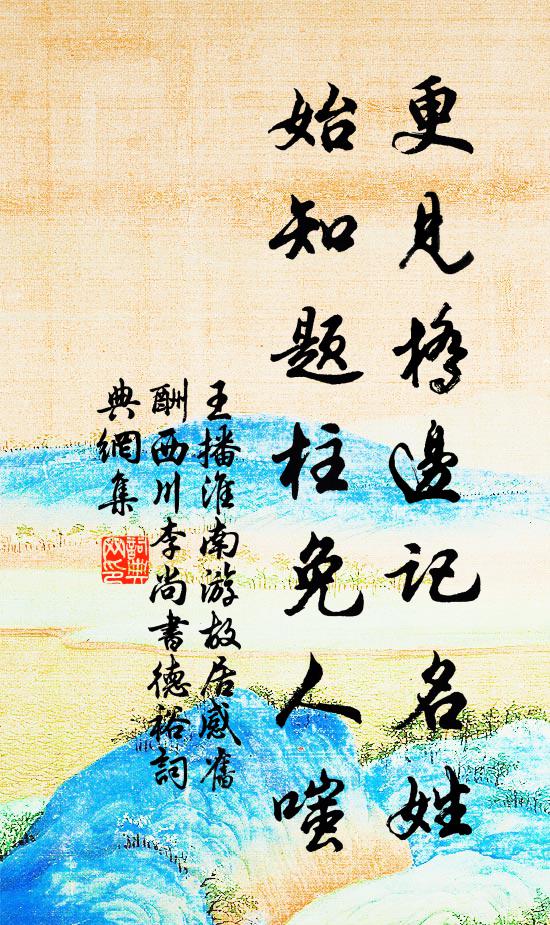 更見橋邊記名姓
始知題柱免人嗤
王播淮南游故居感舊
酬西川李尚書德裕詞
典網集
詞典
网印